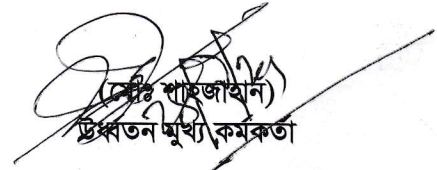 (মোঃ শাহজাহান)
উর্ধ্বতন মুখ্য কর্মকর্তা